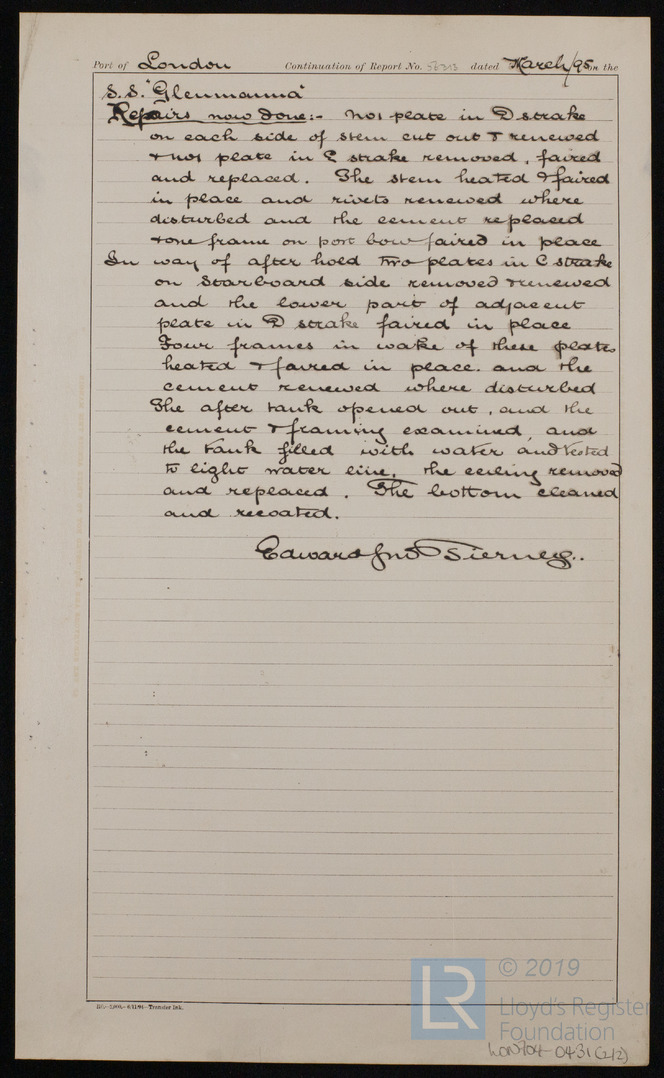 Port of London Continuation of Report No. dated March/95 on the
S.S. "Glenmanna"
Repairs now done:- No 1 plate in D strake
on each side of stem cut out & renewed
& No 1 plate in E strake removed, faired
and replaced. The stem heated & faired
in place and rivets renewed where
disturbed and the cement replaced
& one frame on port bow faired in place
In way of after hold two plates in C strake
on starboard side removed & renewed
and the lower part of adjacent
plate in D strake faired in place
Four frames in wake of these plates
heated & faired in place. and the
cement renewed where disturbed
The after tank opened out, and the
cement & framing examined, and
the tank filled with water and tested
to light water line, the ceiling removed
and replaced. The bottom cleaned
and recoated.
Edward Jno Tierney..
Transfer Ink.
LR © 2019
Lloyd's Register
Foundation
LON704-0431(2/2)